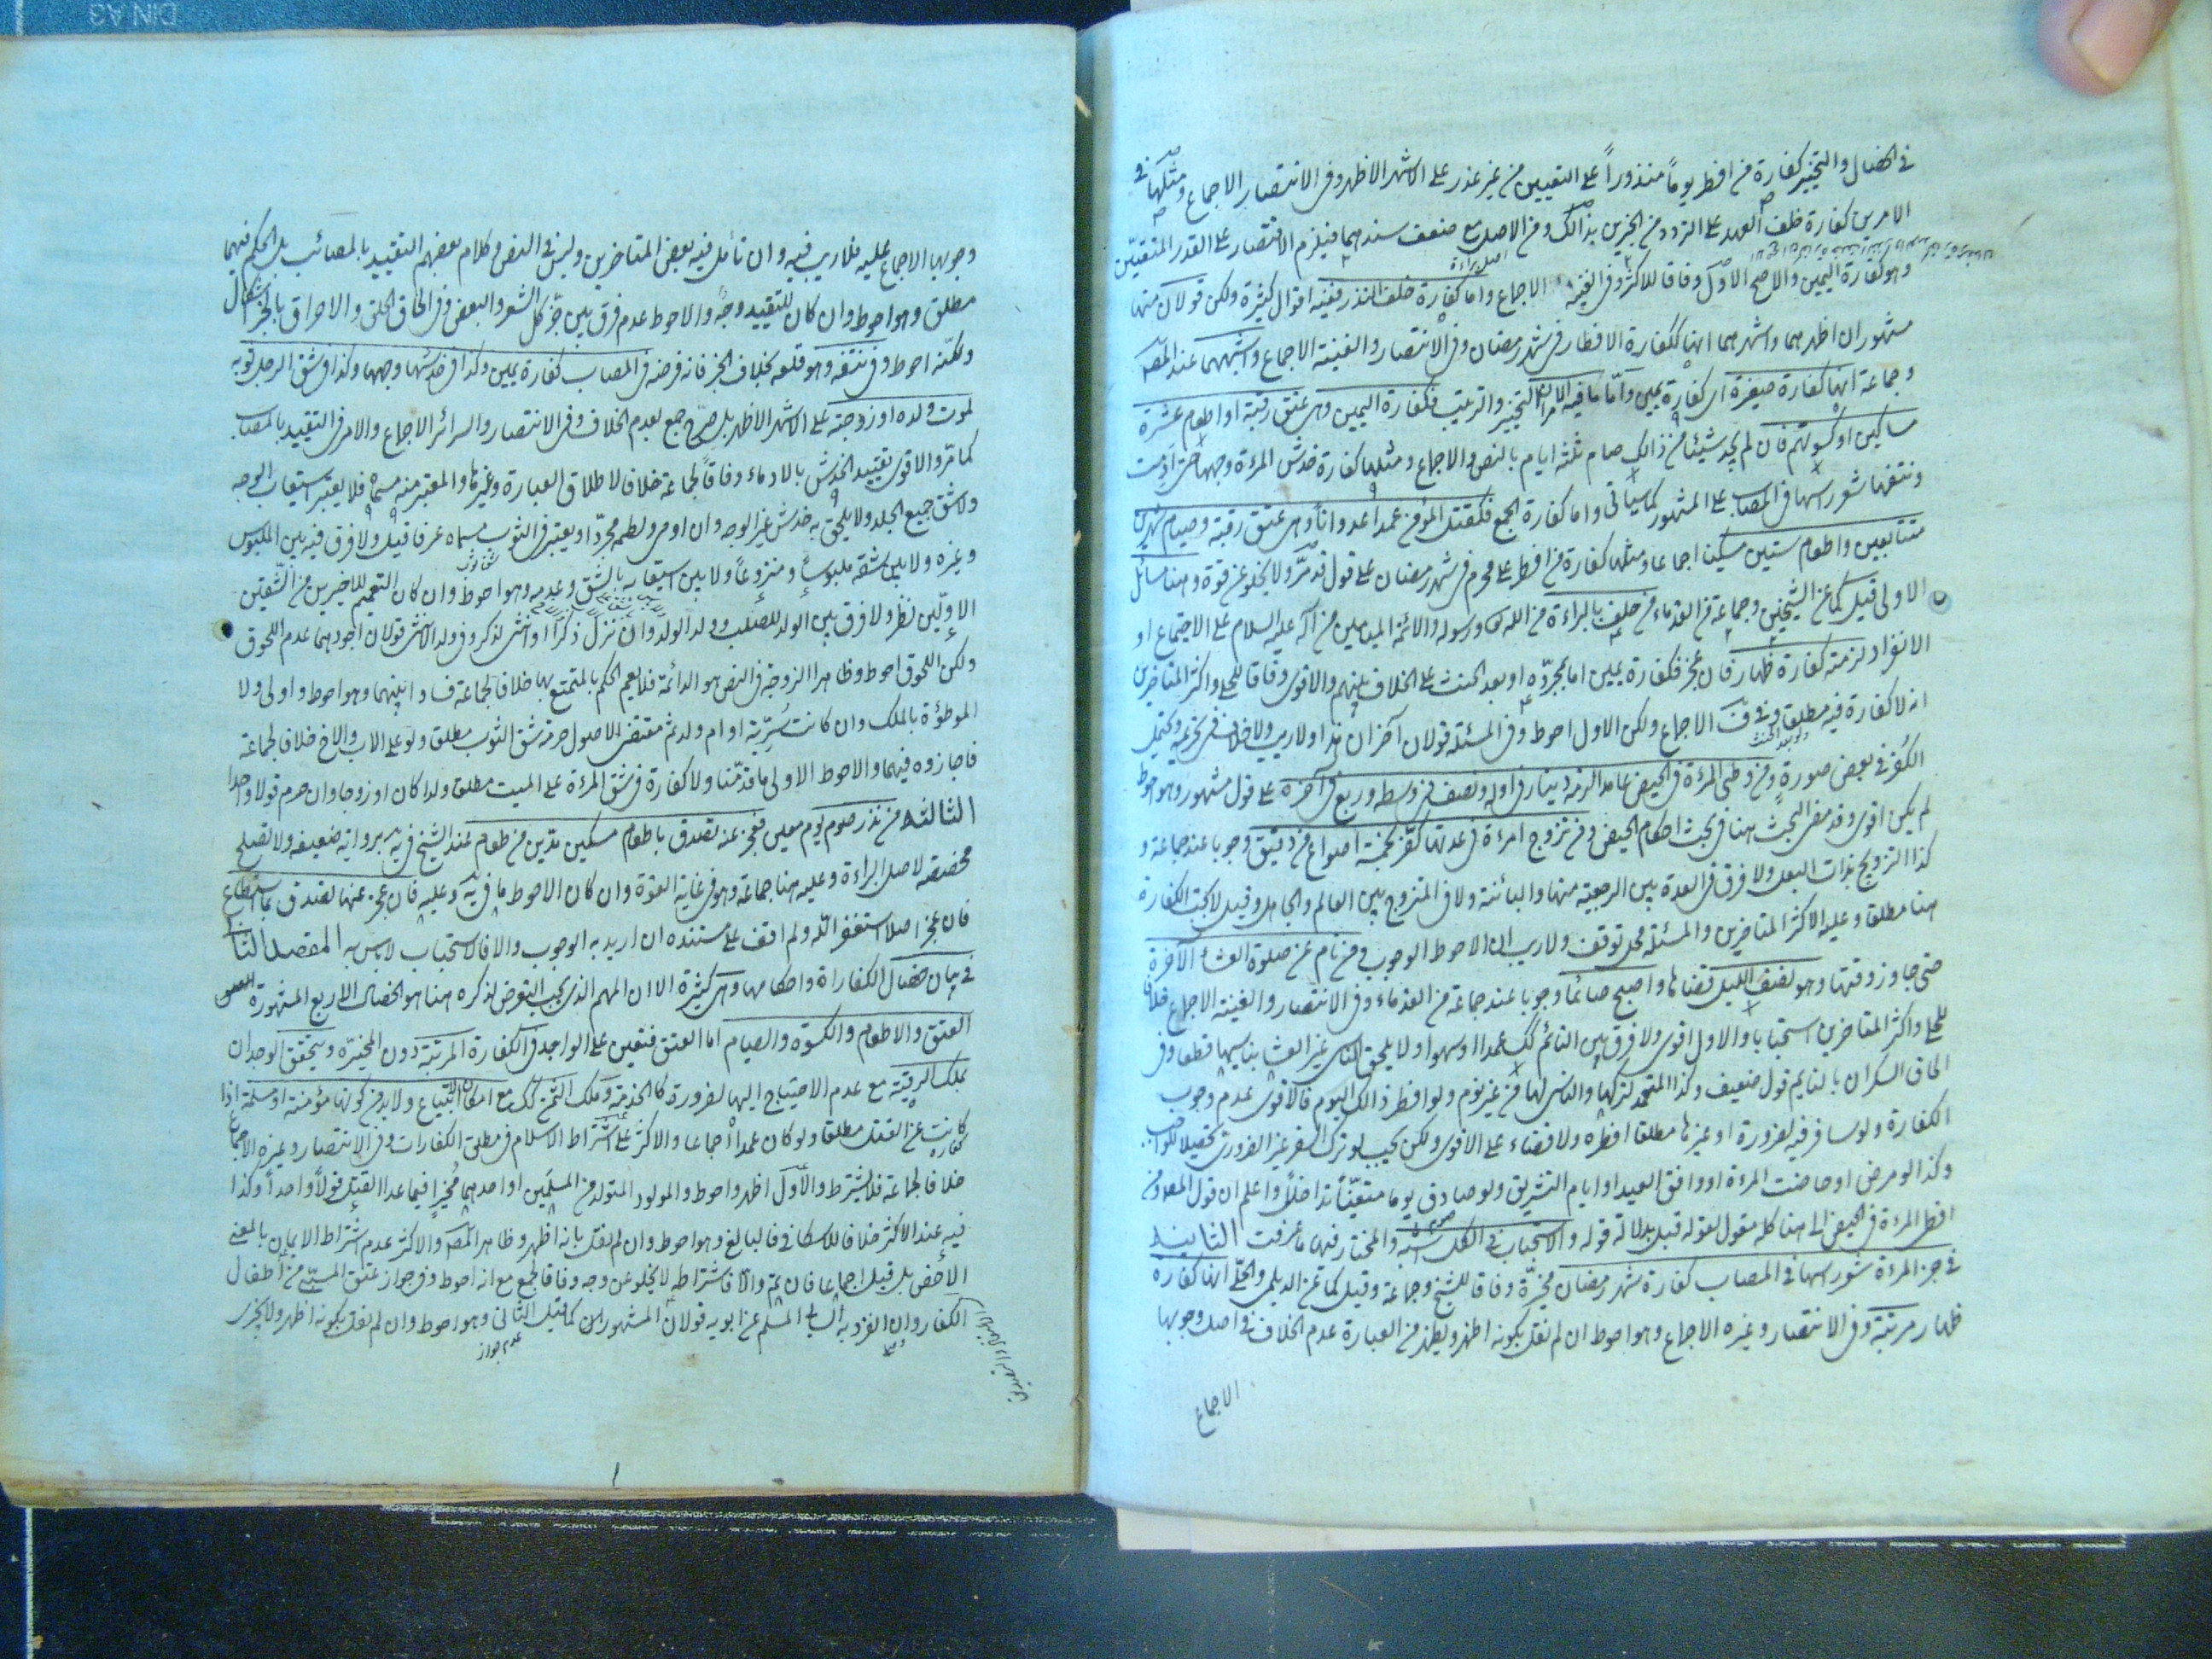 في الخصال والتخيير كفارة من افطر يوماً منذوراً على التعيين من غير عذر على الاشهر الاظهر وفي الانتصار الاجماع ومثلها في
الامرين كفارة خلف العهد على التردد من الخبرين بذالك ومن الاصل مع ضعف سندهما فيلزم الاقتصار على القدر المتقين
وهو كفارة اليمين والاصح الاول وفاقا للاكثر وفي الغنية الاجماع واما كفارة خلف النذر ففيه اقوال كثيرة ولكن قولان منها
مشهوران اظهرهما واشهرهما انها ككفارة الافطار في شهر رمضان وفي الانتصار والغنية الاجماع واشبههما عند المص
وجماعة انها كفارة صغيرة اي كفارة يمين وامّا ما فيه الامران التخيير والترتيب فكفارة اليمين وهي عتق رقبة او اطعام عشرة
مساكين او كسوتهم فان لم يجد شيئا من ذالك صام ثلثة ايام بالنص والاجماع ومثلها كفارة خدش المرءة وجهها حتى ادمت
ونتفها شعر راسها في المصاب على المشهور كما سيأتي واما كفارة الجمع فكقتل المؤمن عمدا عدوانا وهي عتق رقبة وصيام شهرين
متتابعين واطعام ستين مسكينا اجماعا ومثلها كفارة من افطر على محرم في شهر رمضان على قول قد مرّ ولا يخلو عن قوة وهنا مسائل
الاولى قيل كما عن الشيخين وجماعة من القدماء من حلف بالبراءة من الله ورسوله والائمة الميامين من آله عليه السلام على الاجتماع او
الانفراد لزمته كفارة ظهار فان عجز فكفارة يمين اما بمجرده او بعد الحنث على الخلاف بينهم والاقوى وفاقا للحلي واكثر المتاخرين
انه لا كفارة فيه مطلقا وفي ف الاجماع ولكن الاول احوط وفي المسئلة قولان آخران هذا ولا ريب ولا خلاف في تحريمه ويحتمل
الكفر في بعض صوره ومن وطى المرءة في الحيض عامدا لزمه دينار في اوله ونصف في وسطه وربع في آخره على قول مشهور وهو احوط
لم يكن اقوى وقد مضى البحث هنا في بحث احكام الحيض ومن تزوج امرءة في عدتها كفّر بخمسة اصواع من دقيق وجوبا عند جماعة و
كذا التزويج بذات البعل ولا فرق في العدة بين الرجعية منها والبائنة ولا في المتزوج بين العالم والجاهل وقيل لا تجب الكفارة
هنا مطلقا وعليه الاكثر المتاخرين والمسئلة محل توقف ولا ريب ان الاحوط الوجوب ومن نام عن صلوة العشاء الآخرة
حتى جاوز وقتها وهو نصف الليل قضاها واصبح صائما وجوبا عند جماعة من القدماء وفي الانتصار والغنية الاجماع خلافا
للحلي واكثر المتاخرين استحبابا والاول اقوى ولا فرق بين النائم كك عمدا او سهوا ولا يلحق ناسي غير العشا بناسيها قطعا وفي
الحاق السكران بالنايم قول ضعيف وكذا المتعمد لتركها والناس لها من غير نوم ولو افطر ذالك اليوم فالاقوى عدم وجوب
الكفارة ولو سافر فيه لضرورة او غيرها مطلقا افطره ولا قضاء على الاقوى ولكن يجب لو ترك السفر غير الضروري تحصيلا للواجب
وكذا لو مرض او حاضت المرءة او وافق العيد او ايام التشريق ولو صادف يوما متعيّنا تداخلا واعلم ان قول المص من
افطر المرءة في الحيض الى هنا كله مقول لقوله قيل بدلالة قوله والاستحباب في الكل اشبه والمختار فيها ما عرفت الثانية
في جز المرءة شعر راسها في المصاب كفارة شهر رمضان مخيّرة وفاقا للشيخ وجماعة وقيل كما عن الديلمي والحلّي انها كفارة
ظهار مرتبة وفي الانتصار وغيره الاجماع وهو احوط ان لم نقل بكونه اظهر ويظهر من العبارة عدم الخلاف في اصل وجوبها
الاجماع
وجوبها الاجماع عليه فلا ريب فيه وان تأمل فيه بعض المتاخرين وليس في النص وكلام بعضهم التقييد بالمصائب بل الحكم فيهما
مطلق وهو احوط وان كان للتقييد وجه والاحوط عدم فرق بين جزّ كل الشعر والبعض وفي الحاق الحلق والاحراق بالجز اشكال
ولكنه احوط وفي نتفه وهو قلعه بخلاف الجز فانه قرضه في المصاب كفارة يمين وكذا في خدشها وجهها وكذا في شق الرجل ثوبه
لموت ولده او زوجته على الاشهر الاظهر بل صرّح جمع بعدم الخلاف وفي الانتصار والسرائر الاجماع والامر في التقييد بالمصاب
كما مرّ والاقوى تقييد الخدش بالادماء وفاقاً لجماعة خلافا لاطلاق العبارة وغيرها والمعتبر منه مسماه فلا يعتبر استيعاب الوجه
ولا شق جميع الجلد ولا يلحق به خدش غير الوجه وان ادمى ولطمه مجردا ويعتبر في الثوب مسماه عرفا قيل ولا فرق فيه بين الملبوس
وغيره ولا بين شقه ملبوساً ومنزوعاً ولا بين استيعابه بالشق وعدمه وهو احوط وان كان التعميم للاخيرين من الشقين
الاوّلين نظر ولا فرق بين الولد للصلب وولد الولد وان نزل ذكرا او انثى لذكر وفي ولد الانثى قولان اجودهما عدم اللحوق
ولكن اللحوق احوط وظاهرا الزوجة في النص هو الدائمة فلا يعم الحكم بالمتمتع بها خلافا لجماعة فساووا بينهما وهو احوط واولى ولا
الموطؤة بالملك وان كانت سُرّية او ام ولد ثم مقتضى الاصول حرمة شق الثوب مطلقا ولو على الاب والاخ خلافا لجماعة
فاجازوه فيهما والاحوط الاولى ما قدّمنا ولا كفارة في شق المرءة على الميت مطلقا ولدا كان او زوجا وان حرم قولا واحدا
الثالثة من نذر صوم يوم معين فعجز عنه تصدق باطعام مسكين مدّين من طعام عند الشيخ في يه برواية ضعيفه ولا تصلح
مخصصة لاصل البراءة وعليه هنا جماعة وهو في غاية القوة وان كان الاحوط ما في يه وعليه فان عجز عنها تصدق بما استطاع
فان عجز اصلا استغفر الله ولم اقف على مستنده ان اريد به الوجوب والا فالاستحباب لا باس به المقصد الثالث
في بيان خصال الكفاراة واحكامها وهي كثيرة الا ان المهم الذي يجب التعرض لذكره هنا هو الخصال الاربع المشهورة
العتق والاطعام والكسوة والصيام اما العتق فتعين على الواجد في الكفارة المرتبة دون المخيرّة ويتحقق الوجدان
بملك الرقبة مع عدم الاحتياج اليها لضرورة كالخدمة وملك الثمن كك مع امكان الابتياع ولا بد من كونها مؤمنة او مسلمة اذا
كانت عن القتل مطلقا ولو كان عمداً اجماعا والاكثر على اشتراط الاسلام في مطلق الكفارات وفي الانتصار وغيره الاجماع
خلافا لجماعة فلا يشترط والأول اظهر واحوط والمولود المتولد من المسلمَين او احدهما مُجزٍ فيما عدا القتل قولاً واحداً وكذا
فيه عند الاكثر خلافا للاسكافي فالبالغ وهو احوط وان لم نقل بانه اظهر وظاهر المص والاكثر عدم اشتراط الايمان بالمعنى
الاخص بل قيل اجماعا فان تم والا فاشتراطه لا يخلو عن وجه وفاقا لجمع مع انه احوط وفي جواز عتق المسبيّ من اطفال
الكفار وان انفرد به السابي المسلم عن ابويه قولان المشهور كما قيل الثاني وهو احوط وان لم نقل بكونه اظهر ولا يجزي
عدم جواز